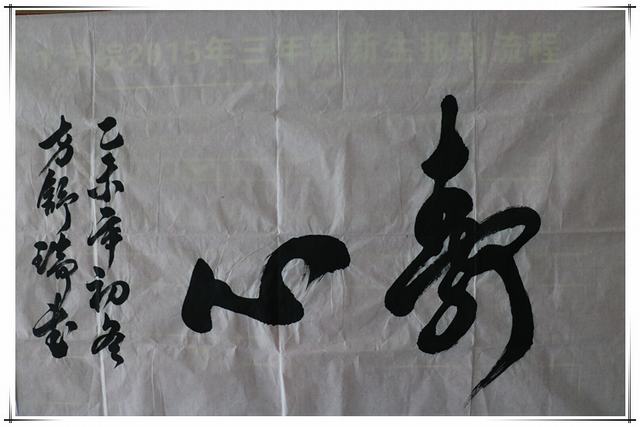 2015年三年制新生报到流程
静心
乙未年初冬
方舒瑞书